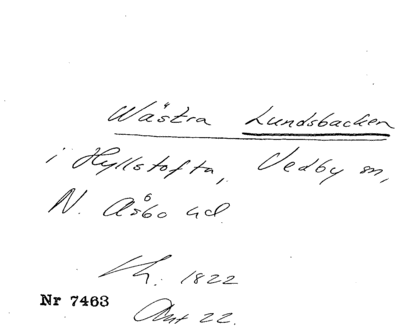 Wästra Lundsbacken
i Hyllstofta, Vedby sn,
N. Åsbo hd.
Lh. 1822
Akt 22.
Nr 7463